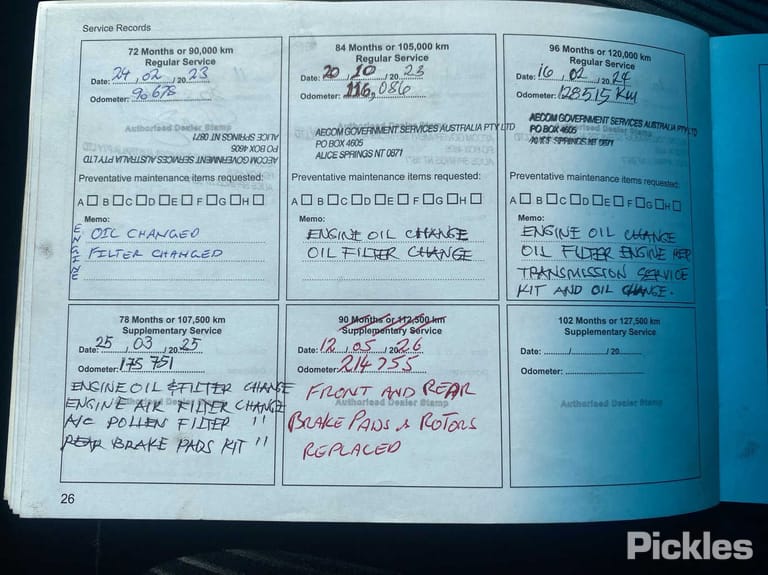 Service Records
72 Months or 90,000 km
Regular Service
Date: 24 / 02 / 20 23
Odometer: 90 678
Authorised Dealer Stamp
AECOM GOVERNMENT SERVICES AUSTRALIA PTY LTD
PO BOX 4605
ALICE SPRINGS NT 0871
Preventative maintenance items requested:
A B C D E F G H
Memo:
ENGINE
OIL CHANGED
FILTER CHANGED
84 Months or 105,000 km
Regular Service
Date: 20 / 10 / 20 23
Odometer: 116,086
Authorised Dealer Stamp
AECOM GOVERNMENT SERVICES AUSTRALIA PTY LTD
PO BOX 4605
ALICE SPRINGS NT 0871
Preventative maintenance items requested:
A B C D E F G H
Memo:
ENGINE OIL CHANGE
OIL FILTER CHANGE
96 Months or 120,000 km
Regular Service
Date: 16 / 02 / 20 24
Odometer: 128515 KM
AECOM GOVERNMENT SERVICES AUSTRALIA PTY LTD
PO BOX 4605
ALICE SPRINGS NT 0871
Preventative maintenance items requested:
A B C D E F G H
Memo:
ENGINE OIL CHANGE
OIL FILTER ENGINE REP
TRANSMISSION SERVICE
KIT AND OIL CHANGE.
78 Months or 107,500 km
Supplementary Service
Date: 25 / 03 / 20 25
Odometer: 175 751
ENGINE OIL & FILTER CHANGE
Authorised Dealer Stamp
ENGINE AIR FILTER CHANGE
A/C POLLEN FILTER "
REAR BRAKE PADS KIT "
90 Months or 112,500 km
Supplementary Service
Date: 12 / 05 / 20 26
Odometer: 214755
FRONT AND REAR
Authorised Dealer Stamp
BRAKE PADS & ROTORS
REPLACED
102 Months or 127,500 km
Supplementary Service
Date: / / 20
Odometer:
Authorised Dealer Stamp
26
Pickles